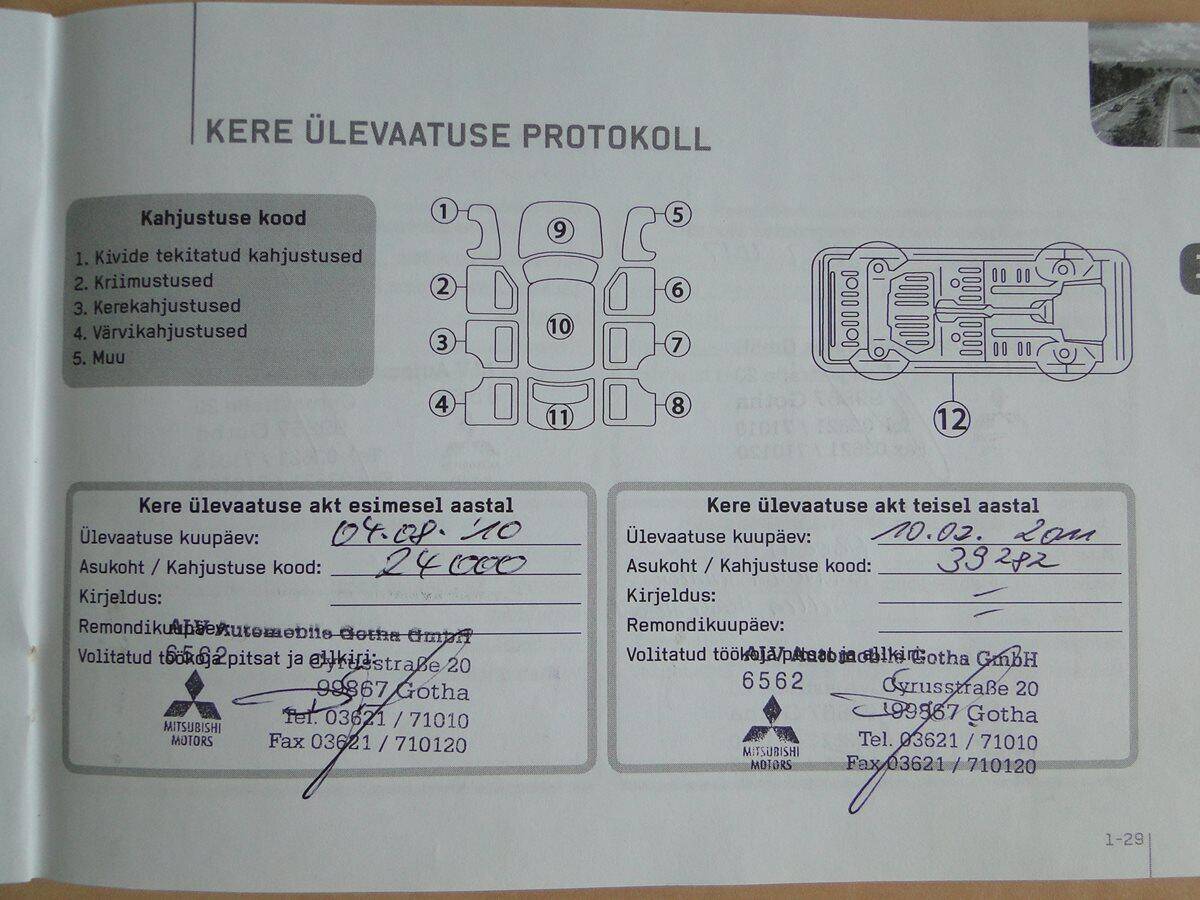 KERE ÜLEVAATUSE PROTOKOLL
Kahjustuse kood
1. Kivide tekitatud kahjustused
2. Kriimustused
3. Kerekahjustused
4. Värvikahjustused
5. Muu
1
2
3
4
5
6
7
8
9
10
11
12
Kere ülevaatuse akt esimesel aastal
Ülevaatuse kuupäev: 04.08.'10
Asukoht / Kahjustuse kood: 24000
Kirjeldus:
Remondikuupäev:
Volitatud töökoja pitsat ja allkiri:
ALV Automobile Gotha GmbH
6562
Cyrusstraße 20
99867 Gotha
Tel. 03621 / 71010
Fax 03621 / 710120
MITSUBISHI
MOTORS
Kere ülevaatuse akt teisel aastal
Ülevaatuse kuupäev: 10.02. 2011
Asukoht / Kahjustuse kood: 39282
Kirjeldus: –
Remondikuupäev: –
Volitatud töökoja pitsat ja allkiri:
ALV Automobile Gotha GmbH
6562
Cyrusstraße 20
99867 Gotha
Tel. 03621 / 71010
Fax 03621 / 710120
MITSUBISHI
MOTORS
1-29